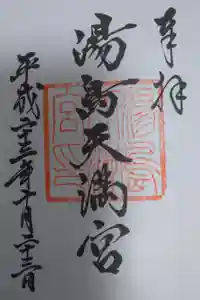 奉拝
湯島天満宮
平成二十三年十月二十三日